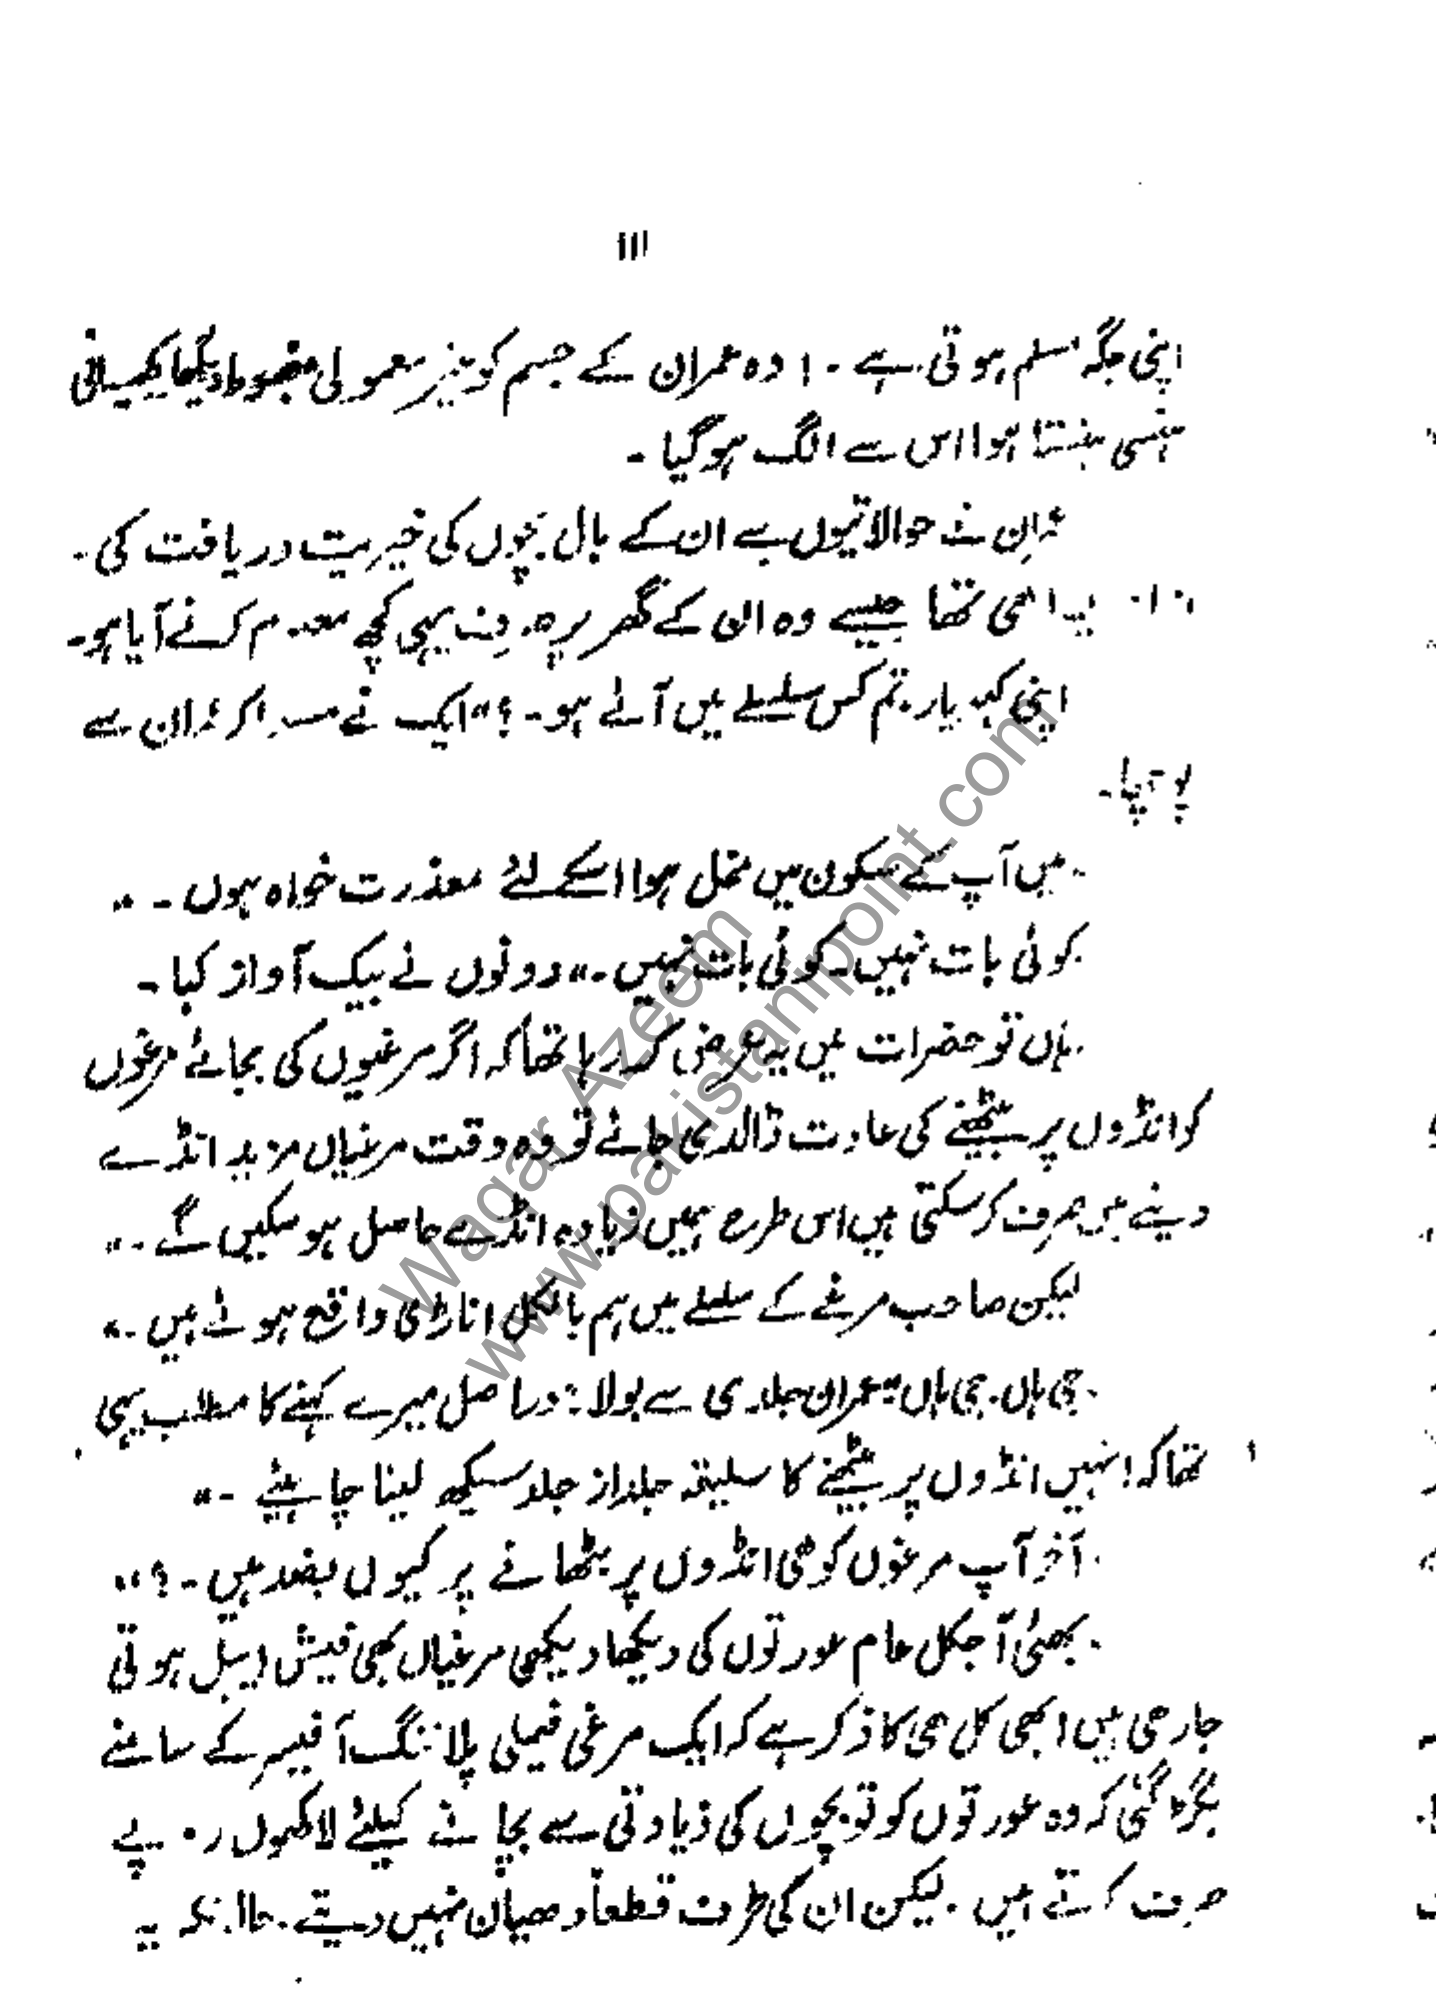 ۱۱۱
اپنی جگہ مسلم ہوتی ہے ۔ ) وہ عمران کے جسم کو غیر معمولی مضبوط دیکھا کھسیانی
ہنسی ہنستا ہوا اس سے الگ ہو گیا ۔
عمران نے حوالاتیوں سے ان کے بال بچوں کی خیریت دریافت کی ۔
انداز ایسا ہی تھا جیسے وہ ان کے گھر پر صرف یہی کچھ معلوم کرنے آیا ہو ۔
اپنی کہو یار ۔ تم کس سلسلے میں آئے ہو ۔ ؟" ایک نے مسکرا کر عمران سے
پوچھا ۔
۔ میں آپ کے سکون میں مخل ہوا اسکے لئے معذرت خواہ ہوں ۔ "
۔ کوئی بات نہیں ۔ کوئی بات نہیں ۔" دونوں نے بیک آواز کہا ۔
۔ ہاں تو حضرات میں یہ عرض کر رہا تھا کہ اگر مرغیوں کی بجائے مرغوں
کو انڈوں پر بیٹھنے کی عادت ڈالدی جائے تو وہ وقت مرغیاں مزید انڈے
دینے میں صرف کر سکتی ہیں اس طرح ہمیں زیادہ انڈے حاصل ہو سکیں گے ۔"
لیکن صاحب مرغے کے سلسلے میں ہم بالکل اناڑی واقع ہوئے ہیں ۔"
۔ جی ہاں ۔ جی ہاں " عمران جلدی سے بولا : " دراصل میرے کہنے کا مطلب یہی
تھا کہ انہیں انڈوں پر بیٹھنے کا سلیقہ جلد از جلد سیکھ لینا چاہیئے ۔"
۔ آخر آپ مرغوں کو ہی انڈوں پر بٹھانے پر کیوں بضد ہیں ۔ ؟"
۔ بھئی آجکل عام عورتوں کی دیکھا دیکھی مرغیاں بھی فیشن ایبل ہوتی
جا رہی ہیں ابھی کل ہی کا ذکر ہے کہ ایک مرغی فیملی پلاننگ آفیسر کے سامنے
بگڑ گئی کہ وہ عورتوں کو تو بچوں کی زیادتی سے بچانے کیلئے لاکھوں روپے
صرف کرتے ہیں ۔ لیکن ان کی طرف قطعاً دھیان نہیں دیتے ۔ حالانکہ یہ
Waqar Azeem
www.pakistanipoint.com